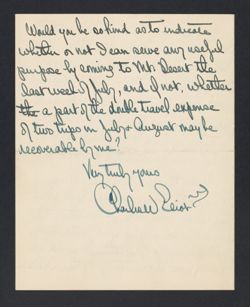 Would you be so kind as to indicate
whether or not I can serve any useful
purpose by coming to Mt. Desert the
last week of July, and, if not, whether
a part of the double travel expense
of two trips in July & August may be
recoverable by me?
Very truly yours
Charles W. Eliot 2nd